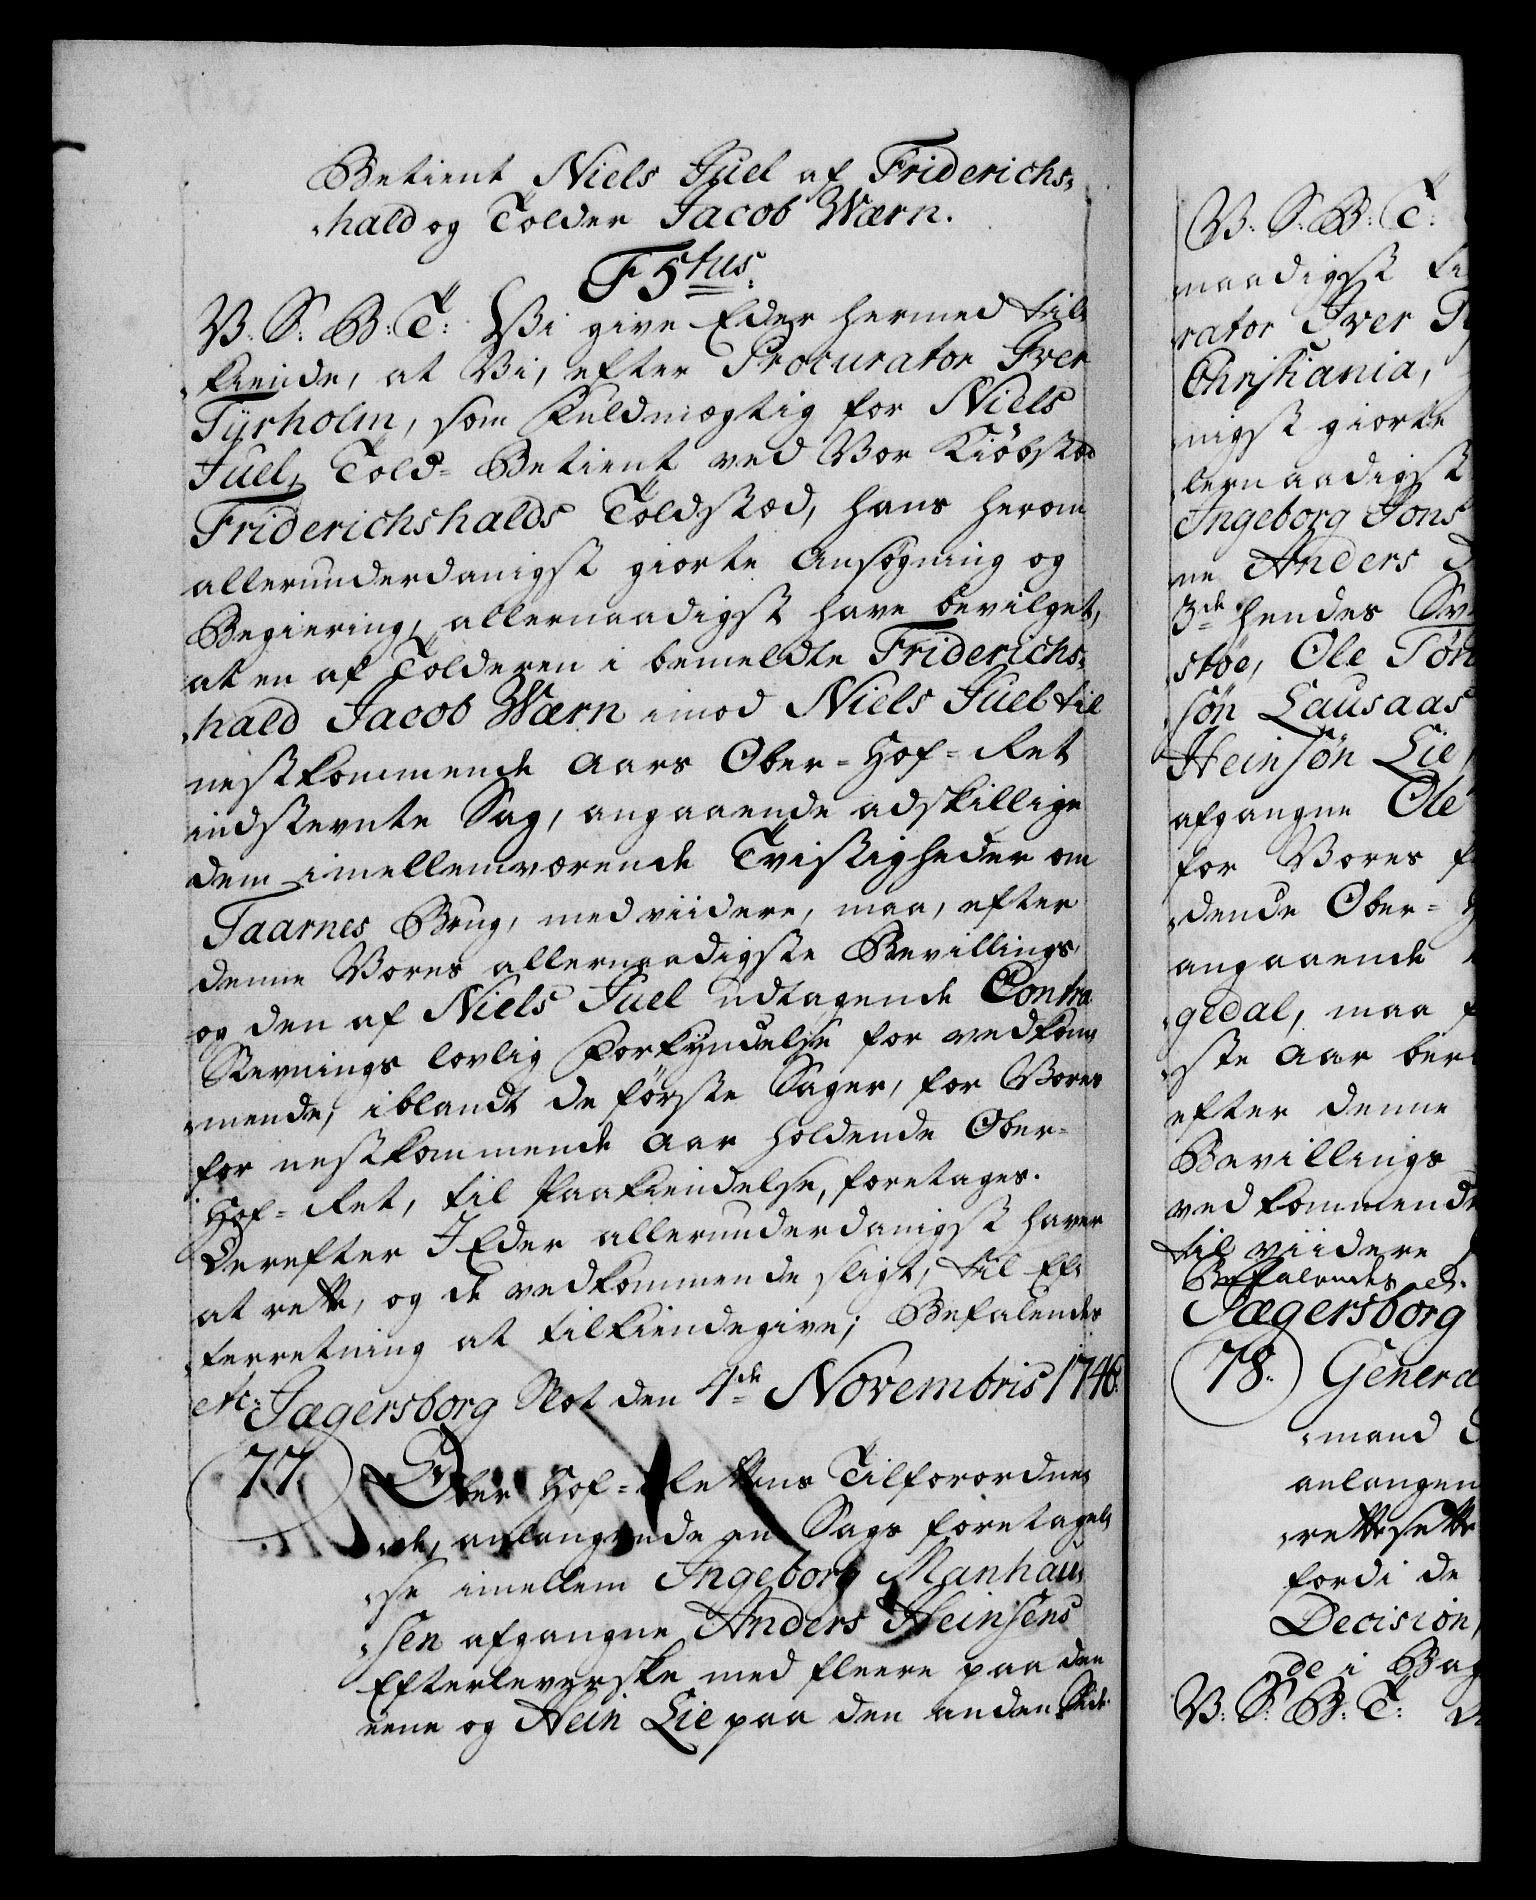 Betient Niels Juel af Friderichs-
hald og Tolder Jacob Wærn.
F 5tus.
V. S: B: T: Vi give Eder hermed til-
kiende, at Vi, efter Procurator Iver
Tyrholm, som Fuldmægtig for Niels
Juel, Told-Betient ved Vor Kiøbstæd
Friderichshalds Toldstæd, hans herom
allerunderdanigst giorte Ansøgning og
Begiering, allernaadigst have bevilget,
at en af Tolderen i bemeldte Friderichs-
hald Jacob Wærn imod Niels Juel til
nestkommende Aars Ober-Hof-Ret
indstevnte Sag, angaaende adskillige
dem imellemværende Tvistigheder om
Taarnes Brug, med viidere, maa, efter
denne Vores allernaadigste Bevillings
og den af Niels Juel udtagende Contra
Stevnings lovlig Forkyndelse for vedkom-
mende, iblandt de første Sager, for Vores
for nestkommende Aar holdende Ober-
Hof-Ret, til Paakiendelse, foretages.
Derefter I Eder allerunderdanigst haver
at rette, og de vedkommende sligt, til Ef-
terretning at tilkiendegive; Befalendes
etc: Jægersborg Slot den 4de Novembris 1746.
77. Ober-Hof-Rettens Tilforordne-
de, anlangende en Sags foretagel-
se imellem Ingeborg Manhau-
sen afgangne Anders Heinsens
Efterleverske med fleere paa den
eene og Hein Lie paa den anden Side
V. S: B: T:
naadigst
rator Iver
Christiania,
nigst giorte
lernaadigst
Ingeborg Jons
ne Anders
3de hendes
støe, Ole
søn Lausaas
Heinsøn Lie,
afgangne Ole
for Vores
dende Ober-
angaaende
gedal, maa
ste Aar
efter denne
Bevillings
vedkommende
til viidere
Befalendes etc.
Jægersborg
78. Genera
mand
anlangen
rettesette
fordi de
Decision,
de i
V: S: B: T: